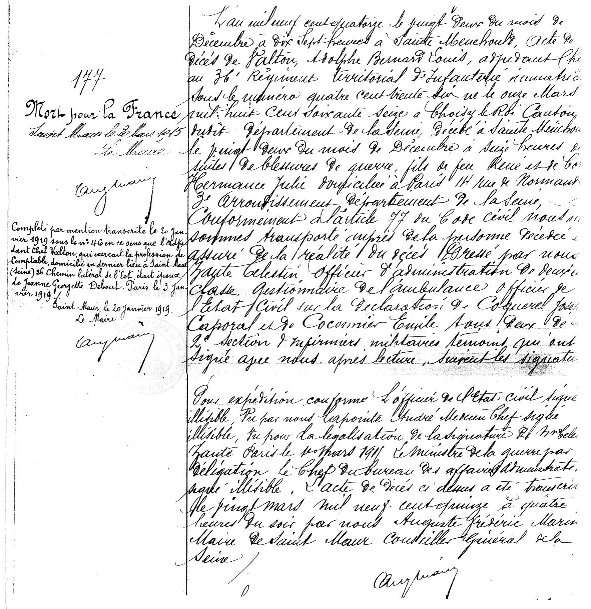 177.
Mort pour la France
Saint Maur le 20 Mars 1915
Le Maire
Complété par mention transcrite le 20 Jan-
vier 1919 sous le n° 46 en ce sens que l'Adju-
dant Chef Valton, qui exerçait la profession de
Comptable, domicilié en dernier lieu à Saint Maur
(Seine) 26 Chemin latéral de l'Est, était époux
de Jeanne Georgette Debout. Paris le 3 Jan-
vier 1919.
Saint Maur le 20 Janvier 1919
Le Maire
L'an mil neuf cent quatorze le vingt deux du mois de
Décembre à dix sept heures à Sainte Menehould, Acte de
décès de Valton, Adolphe Bernard Louis, adjudant Che
au 36e Régiment territorial d'Infanterie immatric
sous le numéro quatre cent trente six né le onze Mars
mil huit cent soixante seize à Choisy le Roi Canton
dudit Département de la Seine, décédé à Sainte Menehou
le vingt deux du mois de Décembre à seize heures
suites de blessures de guerre, fils de feu René et de
Hermance Julie domiciliée à Paris 14 rue de Normand
3e arrondissement Département de la Seine,
Conformément à l'article 77 du Code civil nous
sommes transporté auprès de la personne décédée
assuré de la réalité du décès. Dressé par nous
Zaute Célestin Officier d'administration de deuxiè
classe gestionnaire de l'ambulance officier de
l'Etat Civil sur la déclaration de Coquerel
Caporal et de Cocomier Emile tous deux de
2e Section d'infirmiers militaires témoins, qui ont
signé avec nous après lecture. Suivent les signatu
Pour expédition conforme L'officier de l'Etat civil signé
illisible Vu par nous Médecin Chef signé
illisible, vu pour la légalisation de la signature de
Zaute Paris le 10 Mars 1915 Le ministre de la guerre par
délégation le Chef du bureau des affaires administrat.
signé illisible. L'acte de décès ci dessus a été transcrit
le vingt mars mil neuf cent quinze à quatre
heures du soir par nous Auguste Frédéric Marin
Maire de Saint Maur Conseiller Général de la
Seine